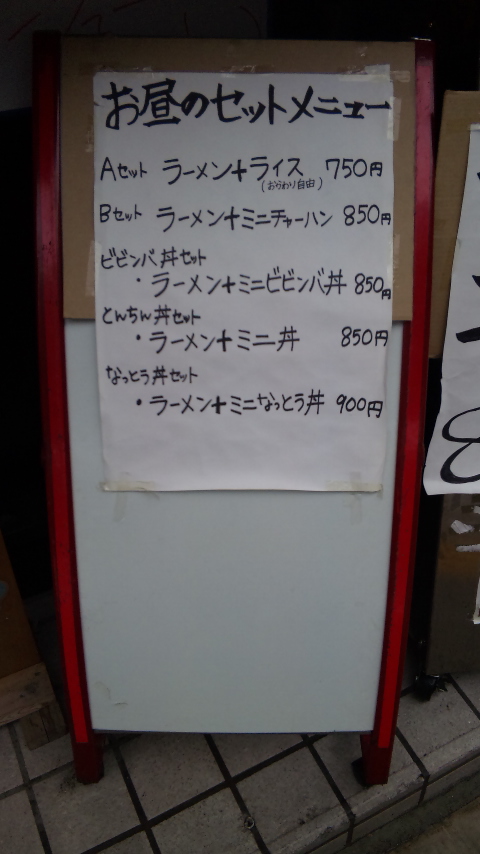 お昼のセットメニュー
Aセット ラーメン+ライス 750円
(おかわり自由)
Bセット ラーメン+ミニチャーハン 850円
ビビンバ丼セット
・ラーメン+ミニビビンバ丼 850円
とんちん丼セット
・ラーメン+ミニ丼 850円
なっとう丼セット
・ラーメン+ミニなっとう丼 900円